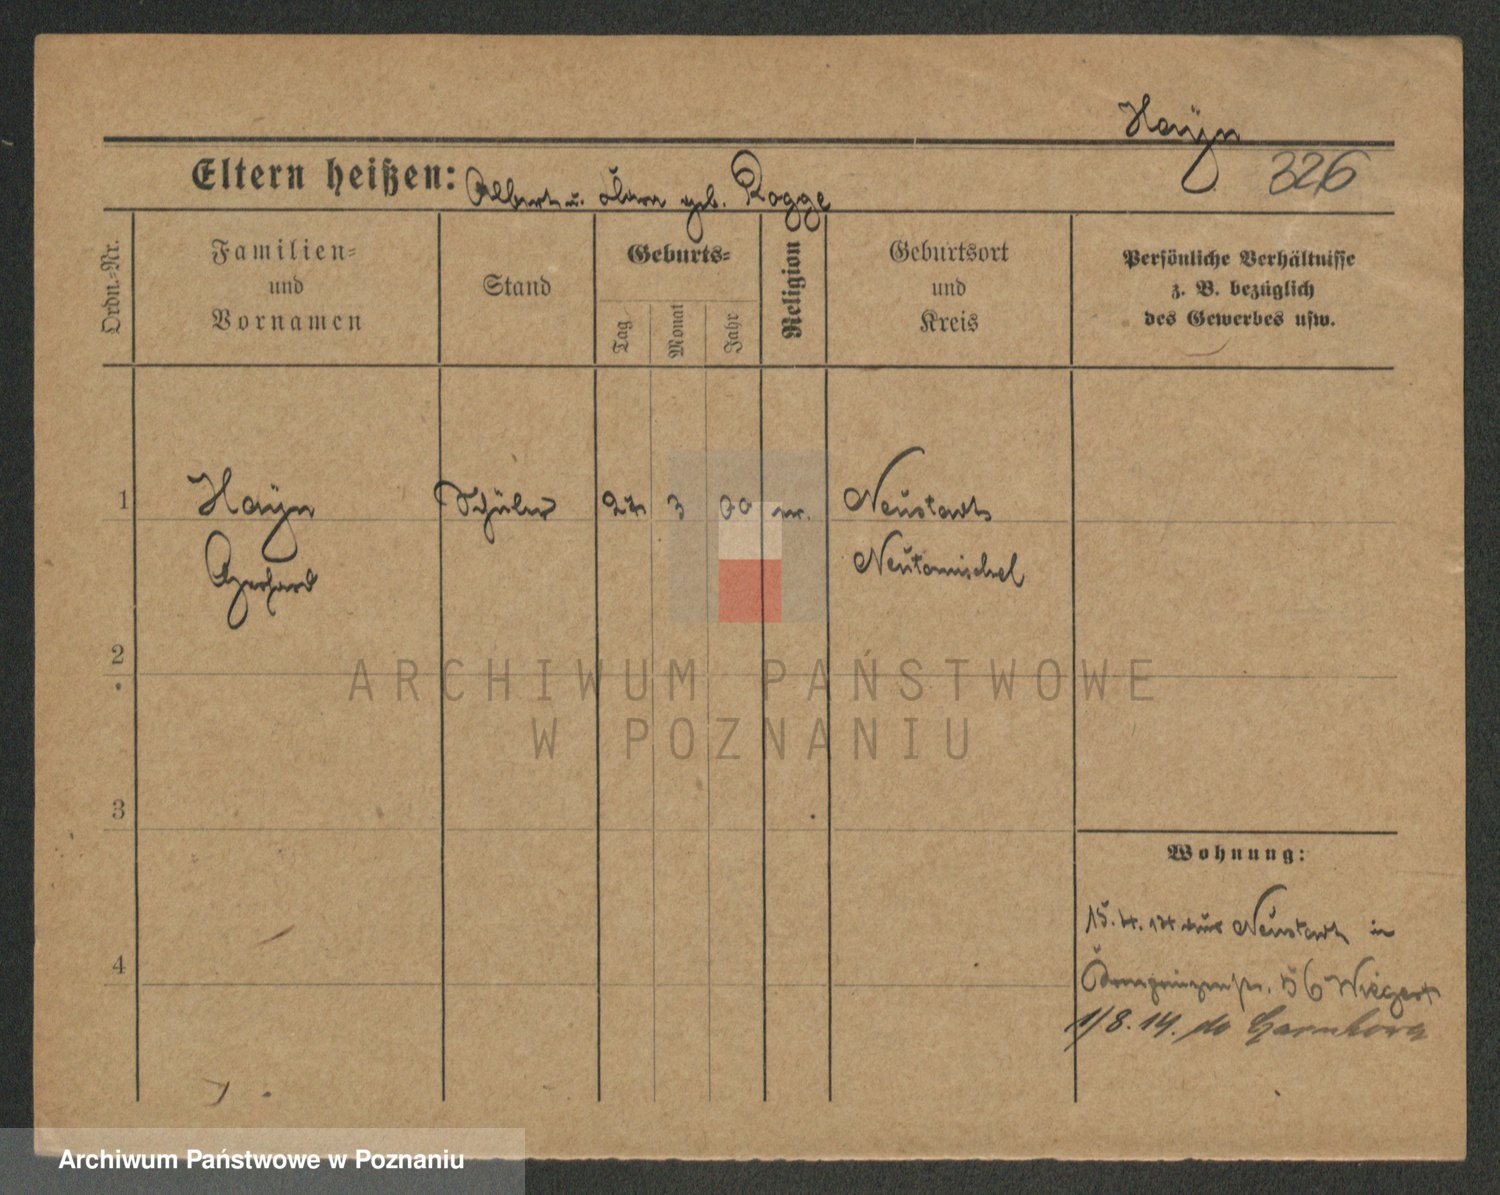 Hayn
326
Eltern heißen: Albert u. Klara geb. Rogge
Ordn.-Nr.
Familien-
und
Vornamen
Stand
Geburts-
Tag
Monat
Jahr
Religion
Geburtsort
und
Kreis
Persönliche Verhältnisse
z. B. bezüglich
des Gewerbes usw.
1
Hayn
Gerhard
Schüler
3
Neustadt
Neutomischel
2
3
4
Wohnung:
15. 4. 14 aus Neustadt in
Kronprinzenstr. Wiegert
1/8. 14.
ARCHIWUM PAŃSTWOWE
W POZNANIU
Archiwum Państwowe w Poznaniu